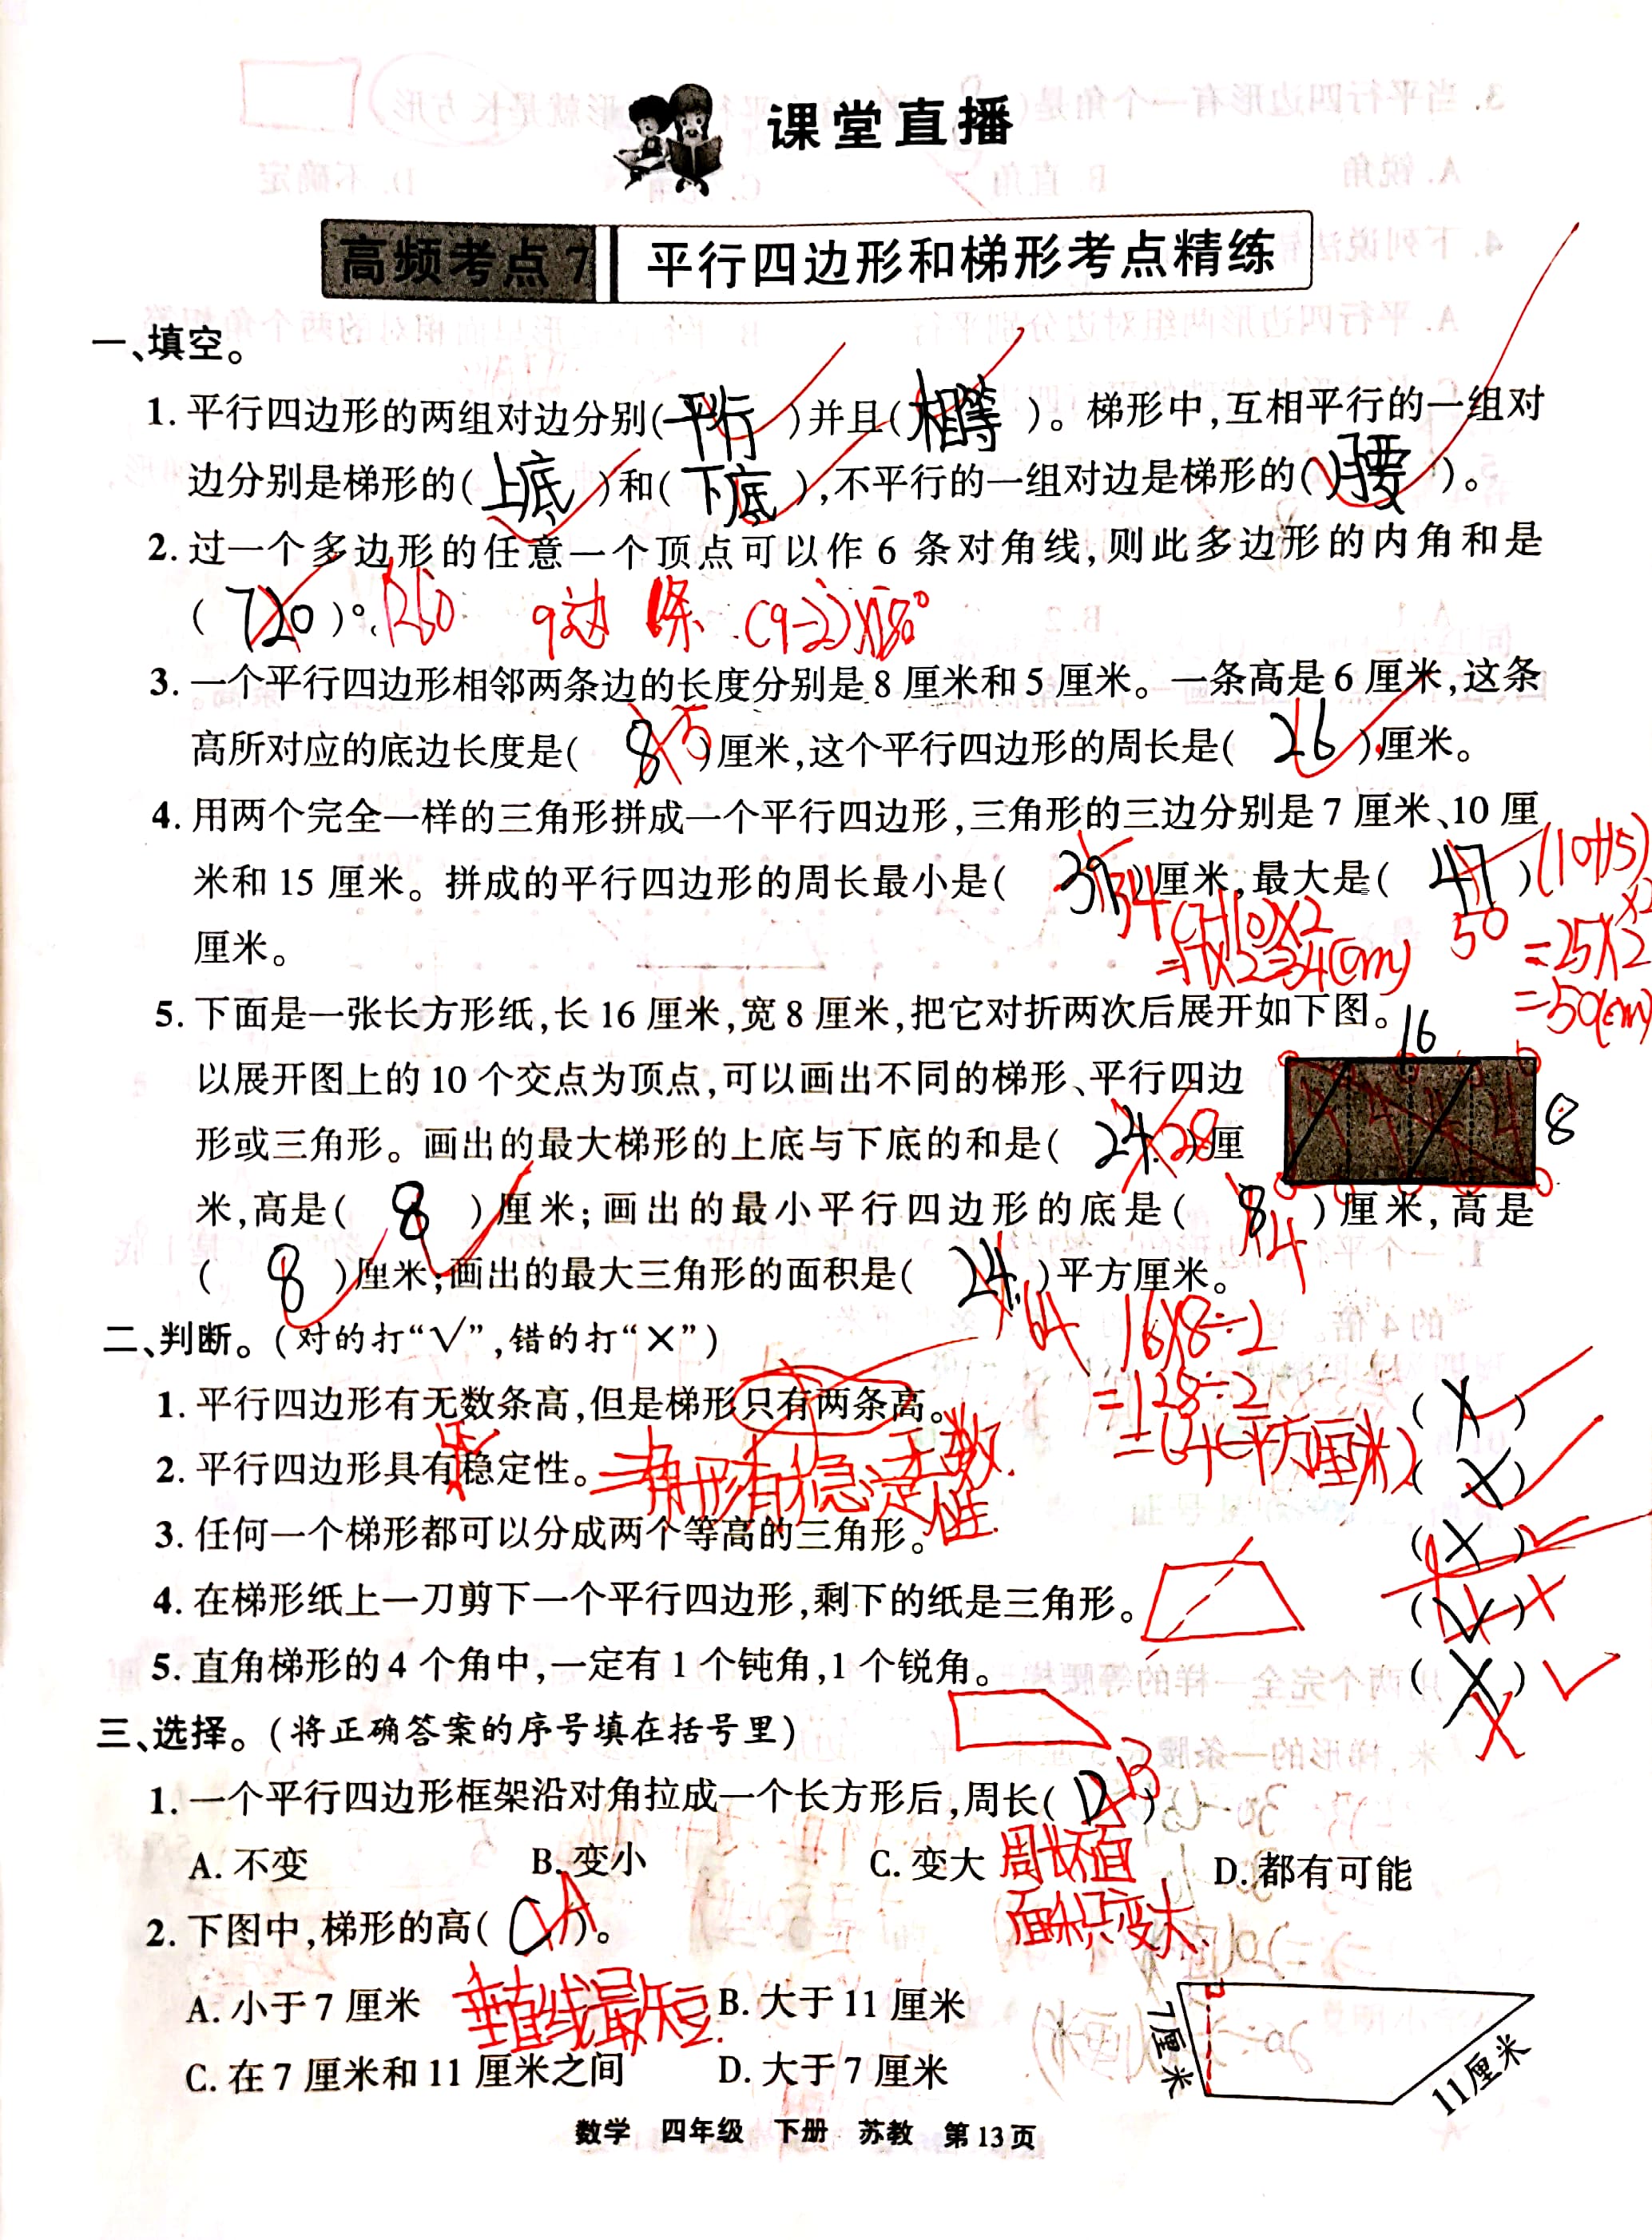 课堂直播
高频考点7 平行四边形和梯形考点精练
一、填空。
1. 平行四边形的两组对边分别(平行)并且(相等)。梯形中,互相平行的一组对
边分别是梯形的(上底)和(下底),不平行的一组对边是梯形的(腰)。
2. 过一个多边形的任意一个顶点可以作 6 条对角线,则此多边形的内角和是
(720)°。1260 9边 (9-2)×180°
3. 一个平行四边形相邻两条边的长度分别是 8 厘米和 5 厘米。一条高是 6 厘米,这条
高所对应的底边长度是(8 5)厘米,这个平行四边形的周长是(26)厘米。
4. 用两个完全一样的三角形拼成一个平行四边形,三角形的三边分别是 7 厘米、10 厘
米和 15 厘米。拼成的平行四边形的周长最小是(39 34)厘米,最大是(47)
50
(10+15)×2
=25×2
=50(cm)
(7+10)×2
=17×2=34(cm)
厘米。
5. 下面是一张长方形纸,长 16 厘米,宽 8 厘米,把它对折两次后展开如下图。
16
以展开图上的 10 个交点为顶点,可以画出不同的梯形、平行四边
8
形或三角形。画出的最大梯形的上底与下底的和是(24 28)厘
米,高是(8)厘米;画出的最小平行四边形的底是(8 4)厘米,高是
(8)厘米;画出的最大三角形的面积是(24 64)平方厘米。
16×8÷2
=128÷2
=64(平方厘米)
二、判断。(对的打“√”,错的打“×”)
1. 平行四边形有无数条高,但是梯形只有两条高。(×)
无数
2. 平行四边形具有稳定性。(×)
不
三角形有稳定性
3. 任何一个梯形都可以分成两个等高的三角形。(×)
4. 在梯形纸上一刀剪下一个平行四边形,剩下的纸是三角形。(√)
5. 直角梯形的 4 个角中,一定有 1 个钝角,1 个锐角。(×)
三、选择。(将正确答案的序号填在括号里)
1. 一个平行四边形框架沿对角拉成一个长方形后,周长(D B)
A. 不变 B. 变小 C. 变大 D. 都有可能
周长不
面积变大
2. 下图中,梯形的高(C A)。
A. 小于 7 厘米 B. 大于 11 厘米
垂直线最短
C. 在 7 厘米和 11 厘米之间 D. 大于 7 厘米
7厘米
11厘米
数学 四年级 下册 苏教 第13页